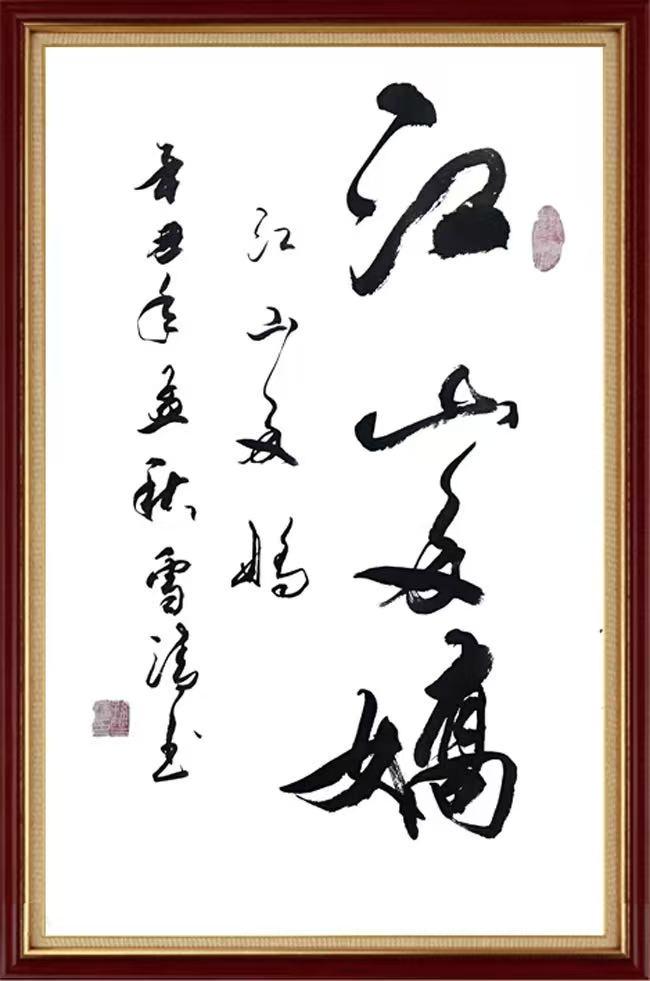 江山多娇
江山多娇
辛丑年孟秋雪清书